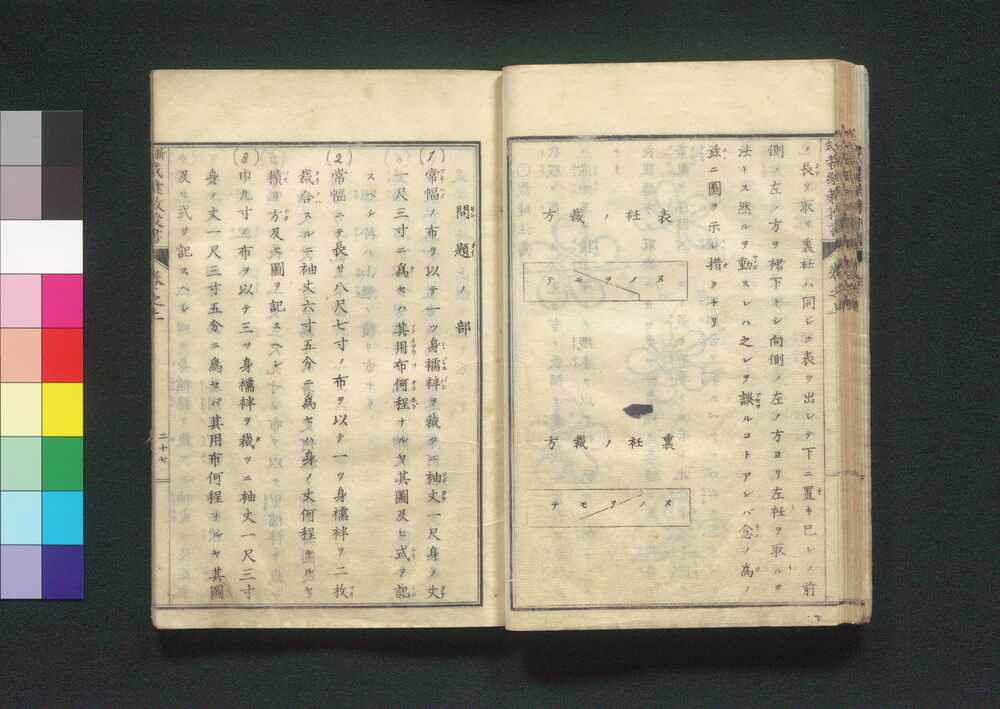 ノ長ヲ取リ裏衽ハ同ジク表ヲ出シテ下ニ置キ已レノ前
側ノ左ノ方ヲ裙下トシ向側ノ左ノ方ヨリ左衽ヲ取ルヲ
法トス然ルヲ動スレハ之レヲ誤ルコトアレバ念ノ為ノ
茲ニ圖ヲ示シ措クナリ
表衽ノ裁方
スノノヲモテ
裏衽ノ裁方
スノノヲモテ
問題ノ部
(1) 常幅ノ布ヲ以テ一ツ身襦袢ヲ裁ツニ袖丈一尺身ノ丈
一尺三寸ニ為セハ其用布何程ナルヤ其圖及ヒ式ヲ記
スヘシ
(2) 常幅ニテ長サ八尺七寸ノ布ヲ以テ一ツ身襦袢ヲ二枚
裁合スルニ袖丈六寸五分ニ為セハ身ノ丈何程ナルヤ
積リ方及ヒ圖ヲ記スヘシ
(3) 巾九寸ノ布ヲ以テ三ツ身襦袢ヲ裁ツニ袖丈一尺三寸
身ノ丈一尺三寸五分ニ為セバ其用布何程ナルヤ其圖
及ヒ式ヲ記スヘシ
卷之二
二十七